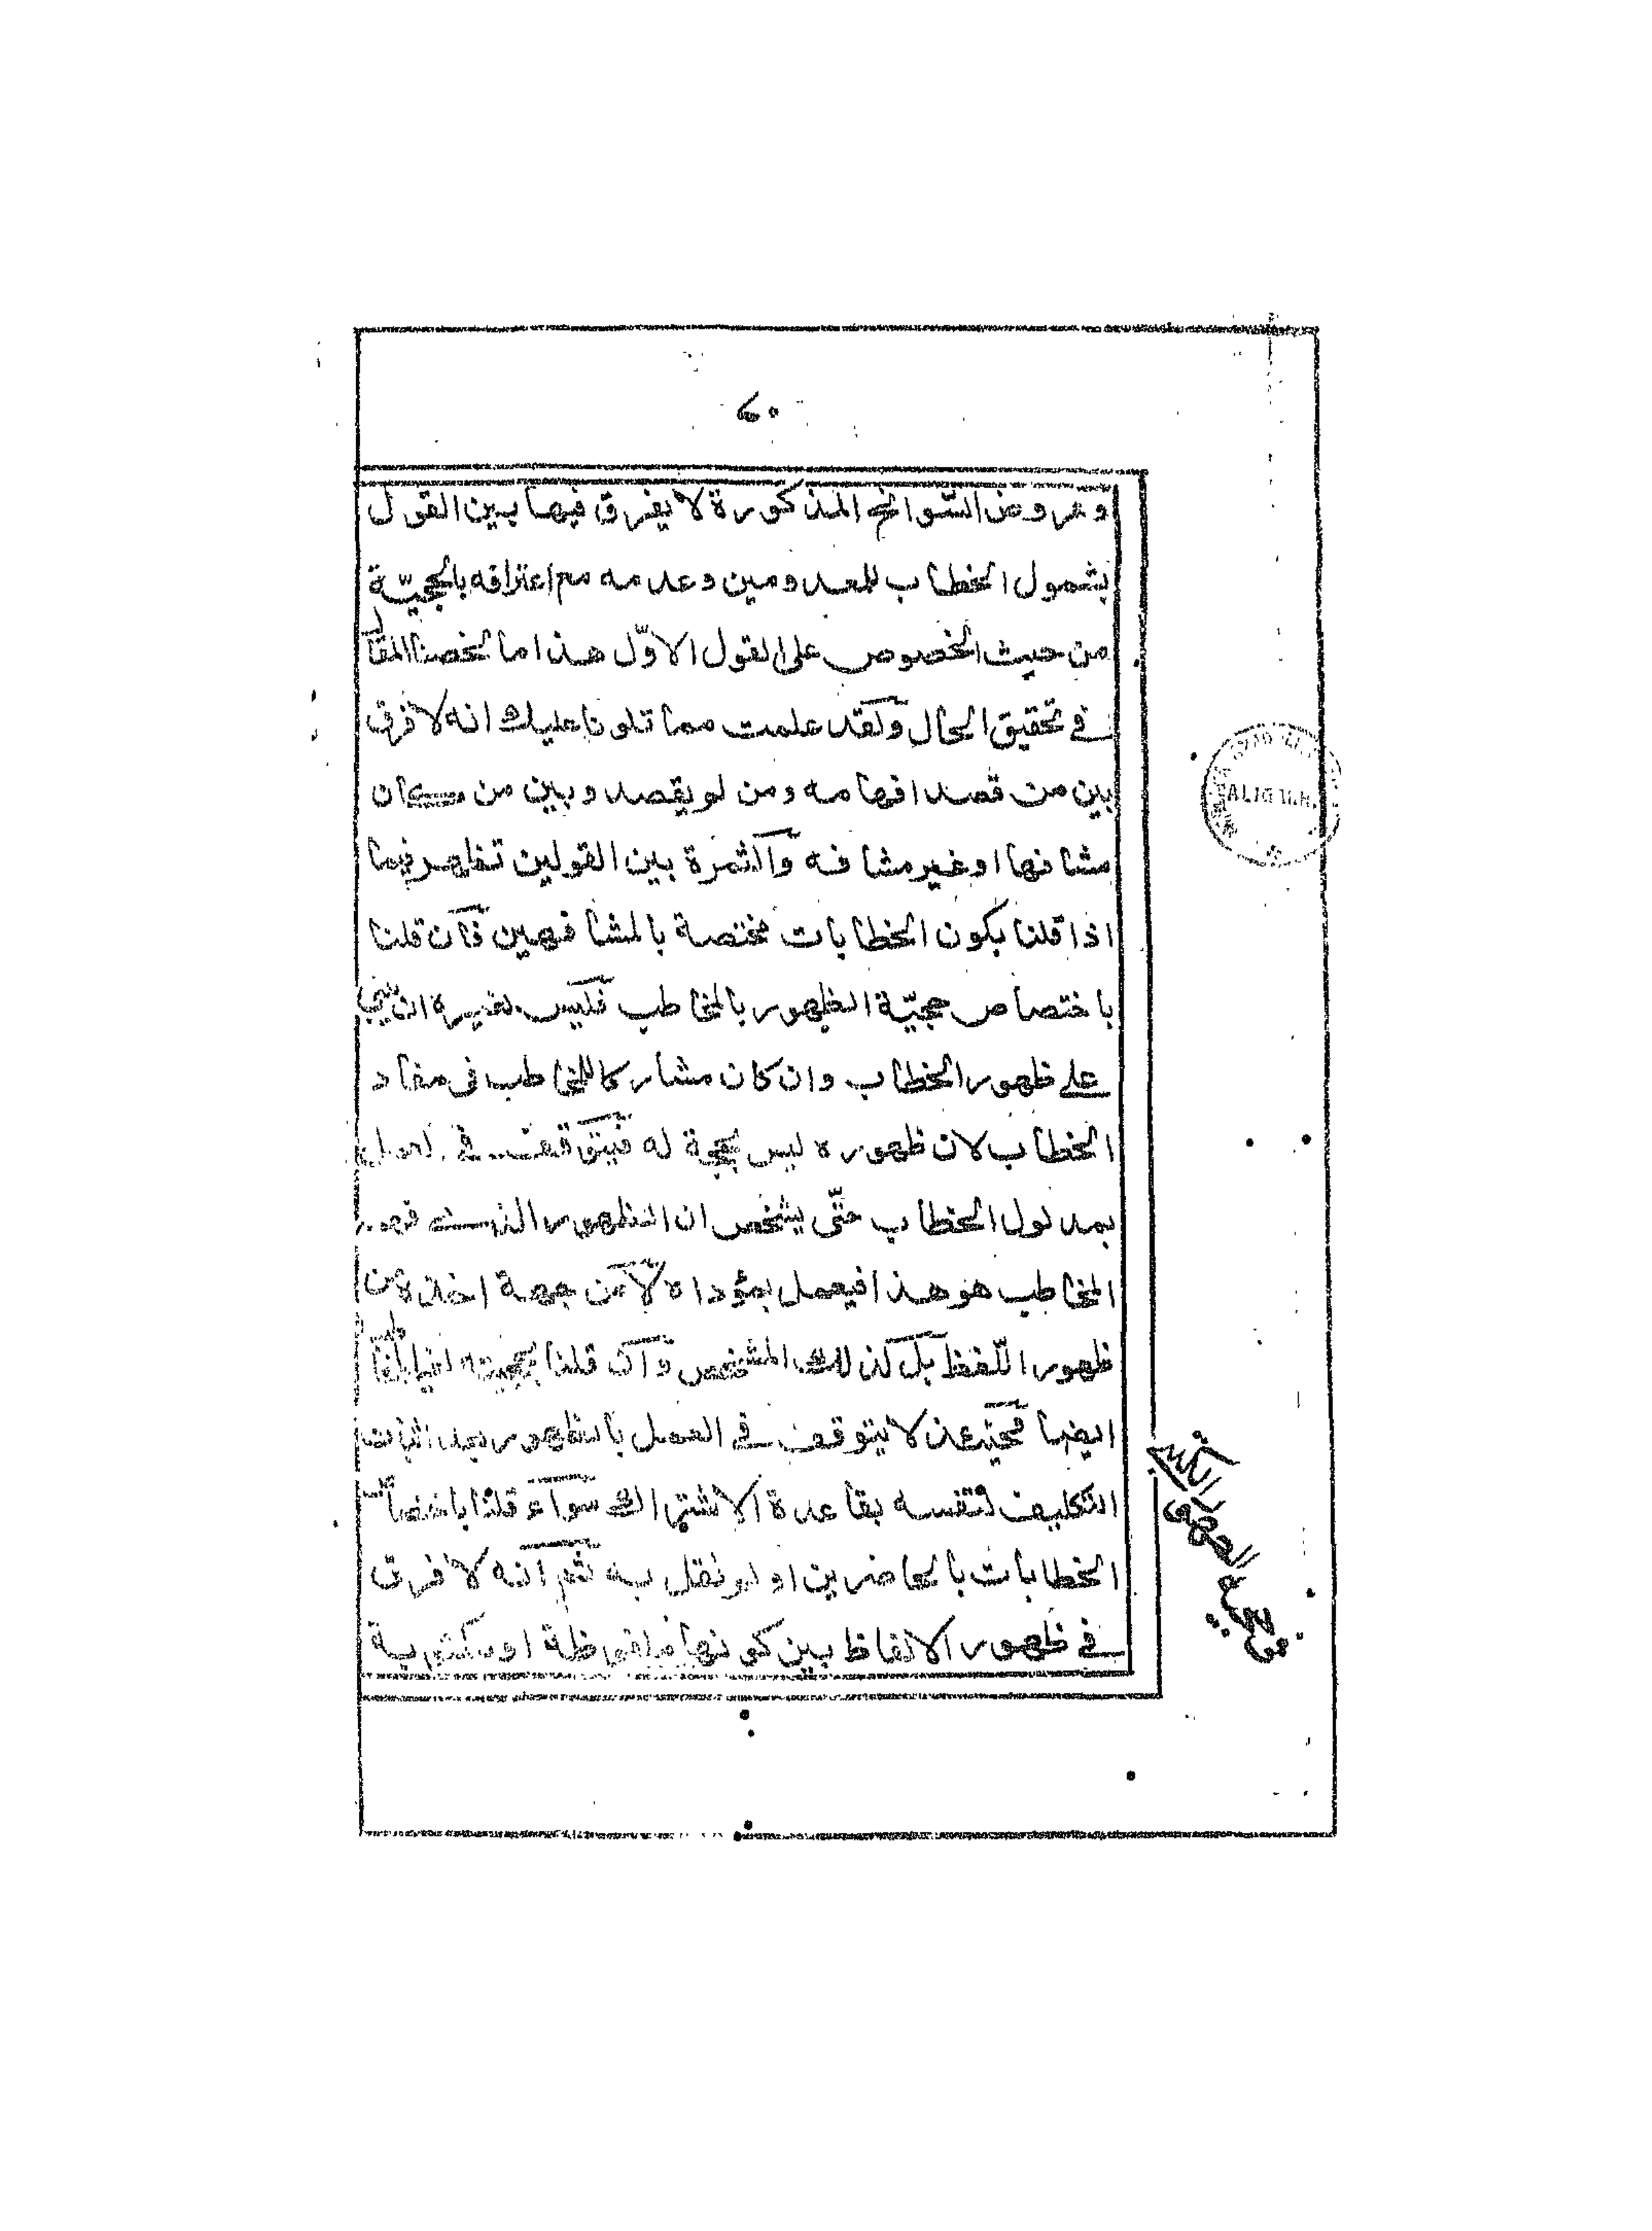 ٤٠
وعروض السّوانح المذكورة لا يفرق فيها بين القول
بشمول الخطاب للمعدومين وعدمه مع اعترافه بالحجيّة
من حيث الخصوص على القول الاوّل هذا ما لخصنا المقال
في تحقيق الحال ولقد علمت مما تلونا عليك انه لا فرق
بين من قصد افهامه ومن لم يقصد وبين من كان
مشافها او غير مشافه والثمرة بين القولين تظهر فيما
اذا قلنا بكون الخطابات مختصة بالمشافهين فان قلنا
باختصاص حجيّة الظهور بالمخاطب فليس لغيره ان
على ظهور الخطاب وان كان مشاركا للمخاطب في مفاد
الخطاب لان ظهوره ليس بحجة له فيتوقف في
بمدلول الخطاب حتّى يشخص ان الظهور الذي فهمه
المخاطب هو هذا فيعمل بمؤداه لا من جهة
ظهور اللّفظ بل لذلك المشخص وان قلنا بحجيته لغير
ايضا فحينئذ لا يتوقف في العمل بالظهور بعد اثبات
التكليف لنفسه بقاعدة الاشتراك سواء قلنا باختصاص
الخطابات بالحاضرين او لم نقل به ثم انه لا فرق
في ظهور الالفاظ بين كونها ملفوظة او مكتوبة